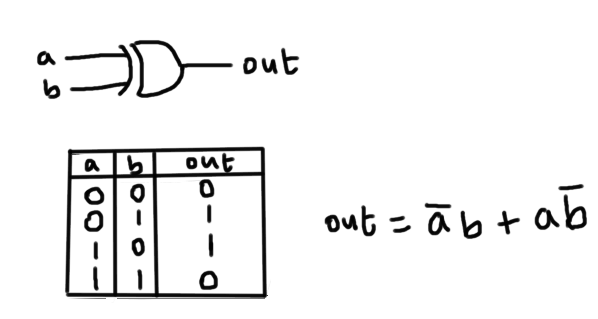 a
b
out
a b out
0 0 0
0 1 1
1 0 1
1 1 0
out = a̅ b + a b̅